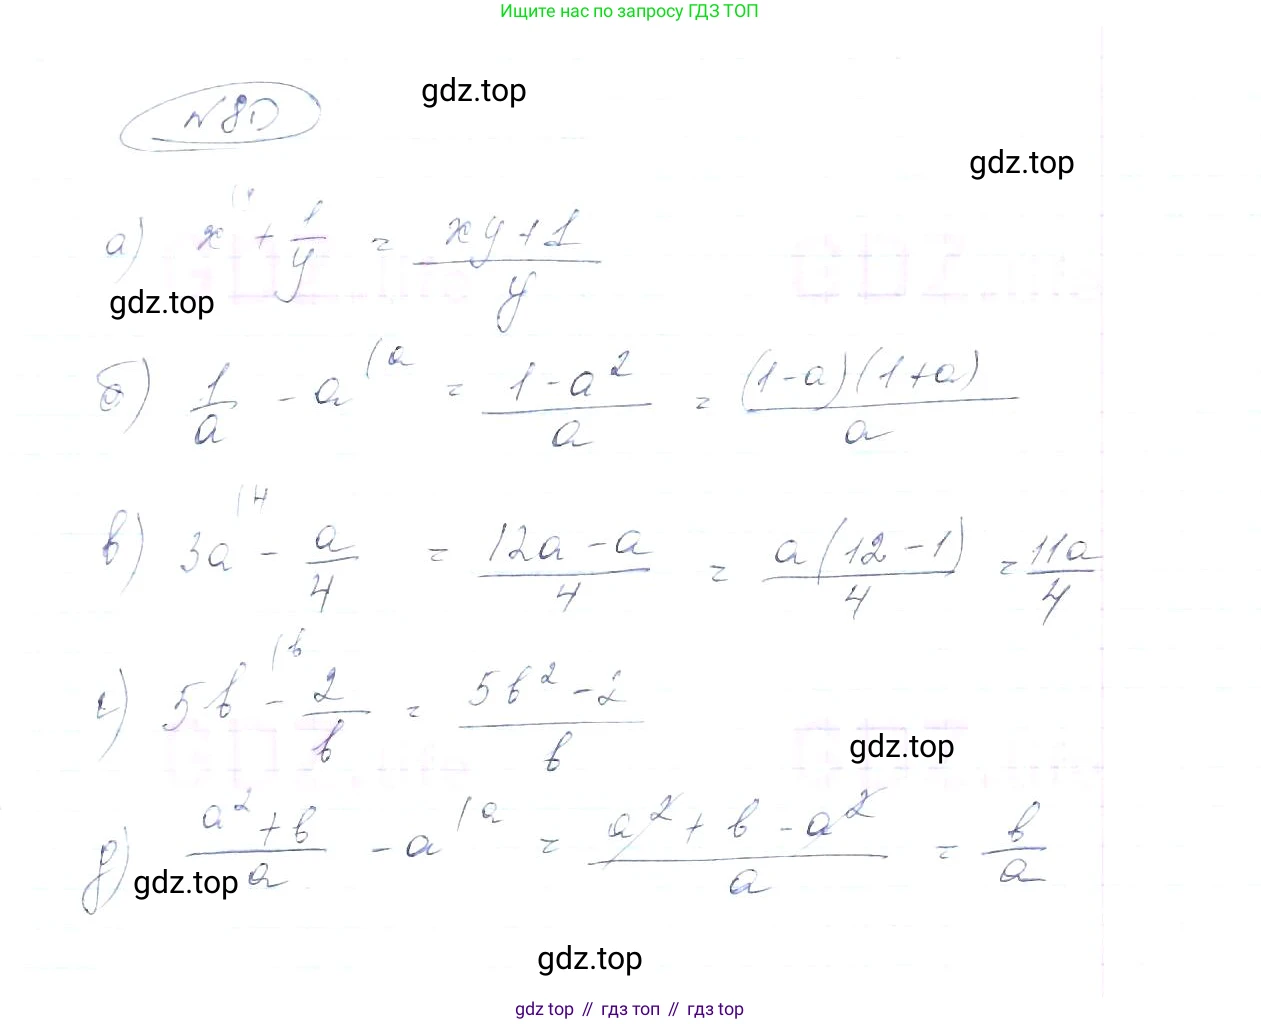 Ищите нас по запросу ГДЗ ТОП
№80
gdz.top
gdz.top
а) x + 1/y = (xy+1)/y
gdz.top
б) 1/a - a (a = (1-a²)/a = (1-a)(1+a)/a
в) 3a (4 - a/4 = (12a-a)/4 = a(12-1)/4 = 11a/4
г) 5b (b - 2/b = (5b²-2)/b
gdz.top
д) (a²+b)/a - a (a = (a²+b-a²)/a = b/a
gdz.top
gdz.top
gdz top // гдз топ // gdz top